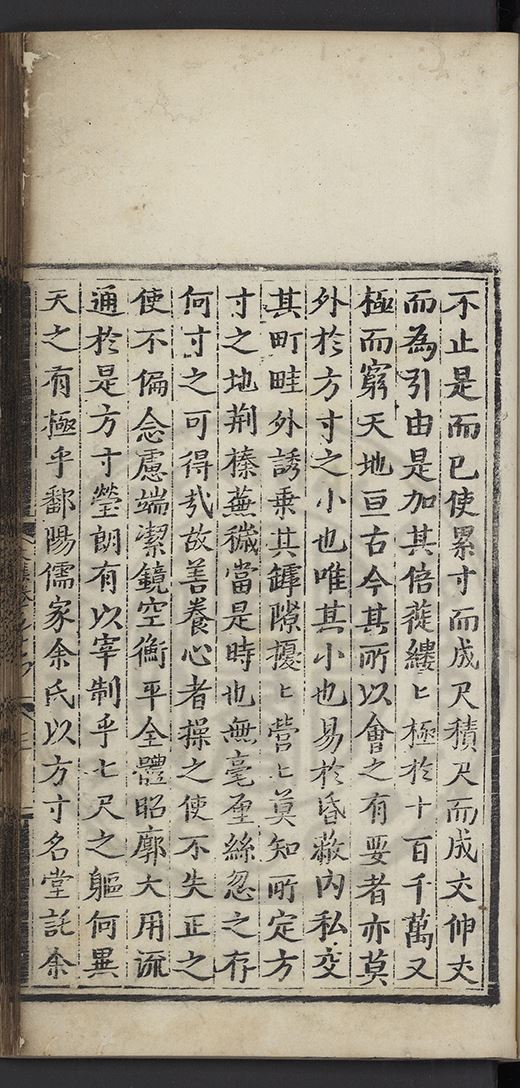 不止是而已使累寸而成尺積尺而成丈伸丈
而為引由是加其倍蓰縷〻極於十百千萬又
極而窮天地亘古今其所以會之有要者亦莫
外於方寸之小也唯其小也易於昏蔽內私交
其町畦外誘乗其罅隙擾〻營〻莫知所定方
寸之地荆榛蕪穢當是時也無毫厘絲忽之存
何寸之可得㢤故善養心者操之使不失正之
使不偏念慮端潔鏡空衡平全體昭廓大用流
通於是方寸瑩朗有以宰制乎七尺之軀何異
天之有極乎鄱陽儒家余氏以方寸名堂託余